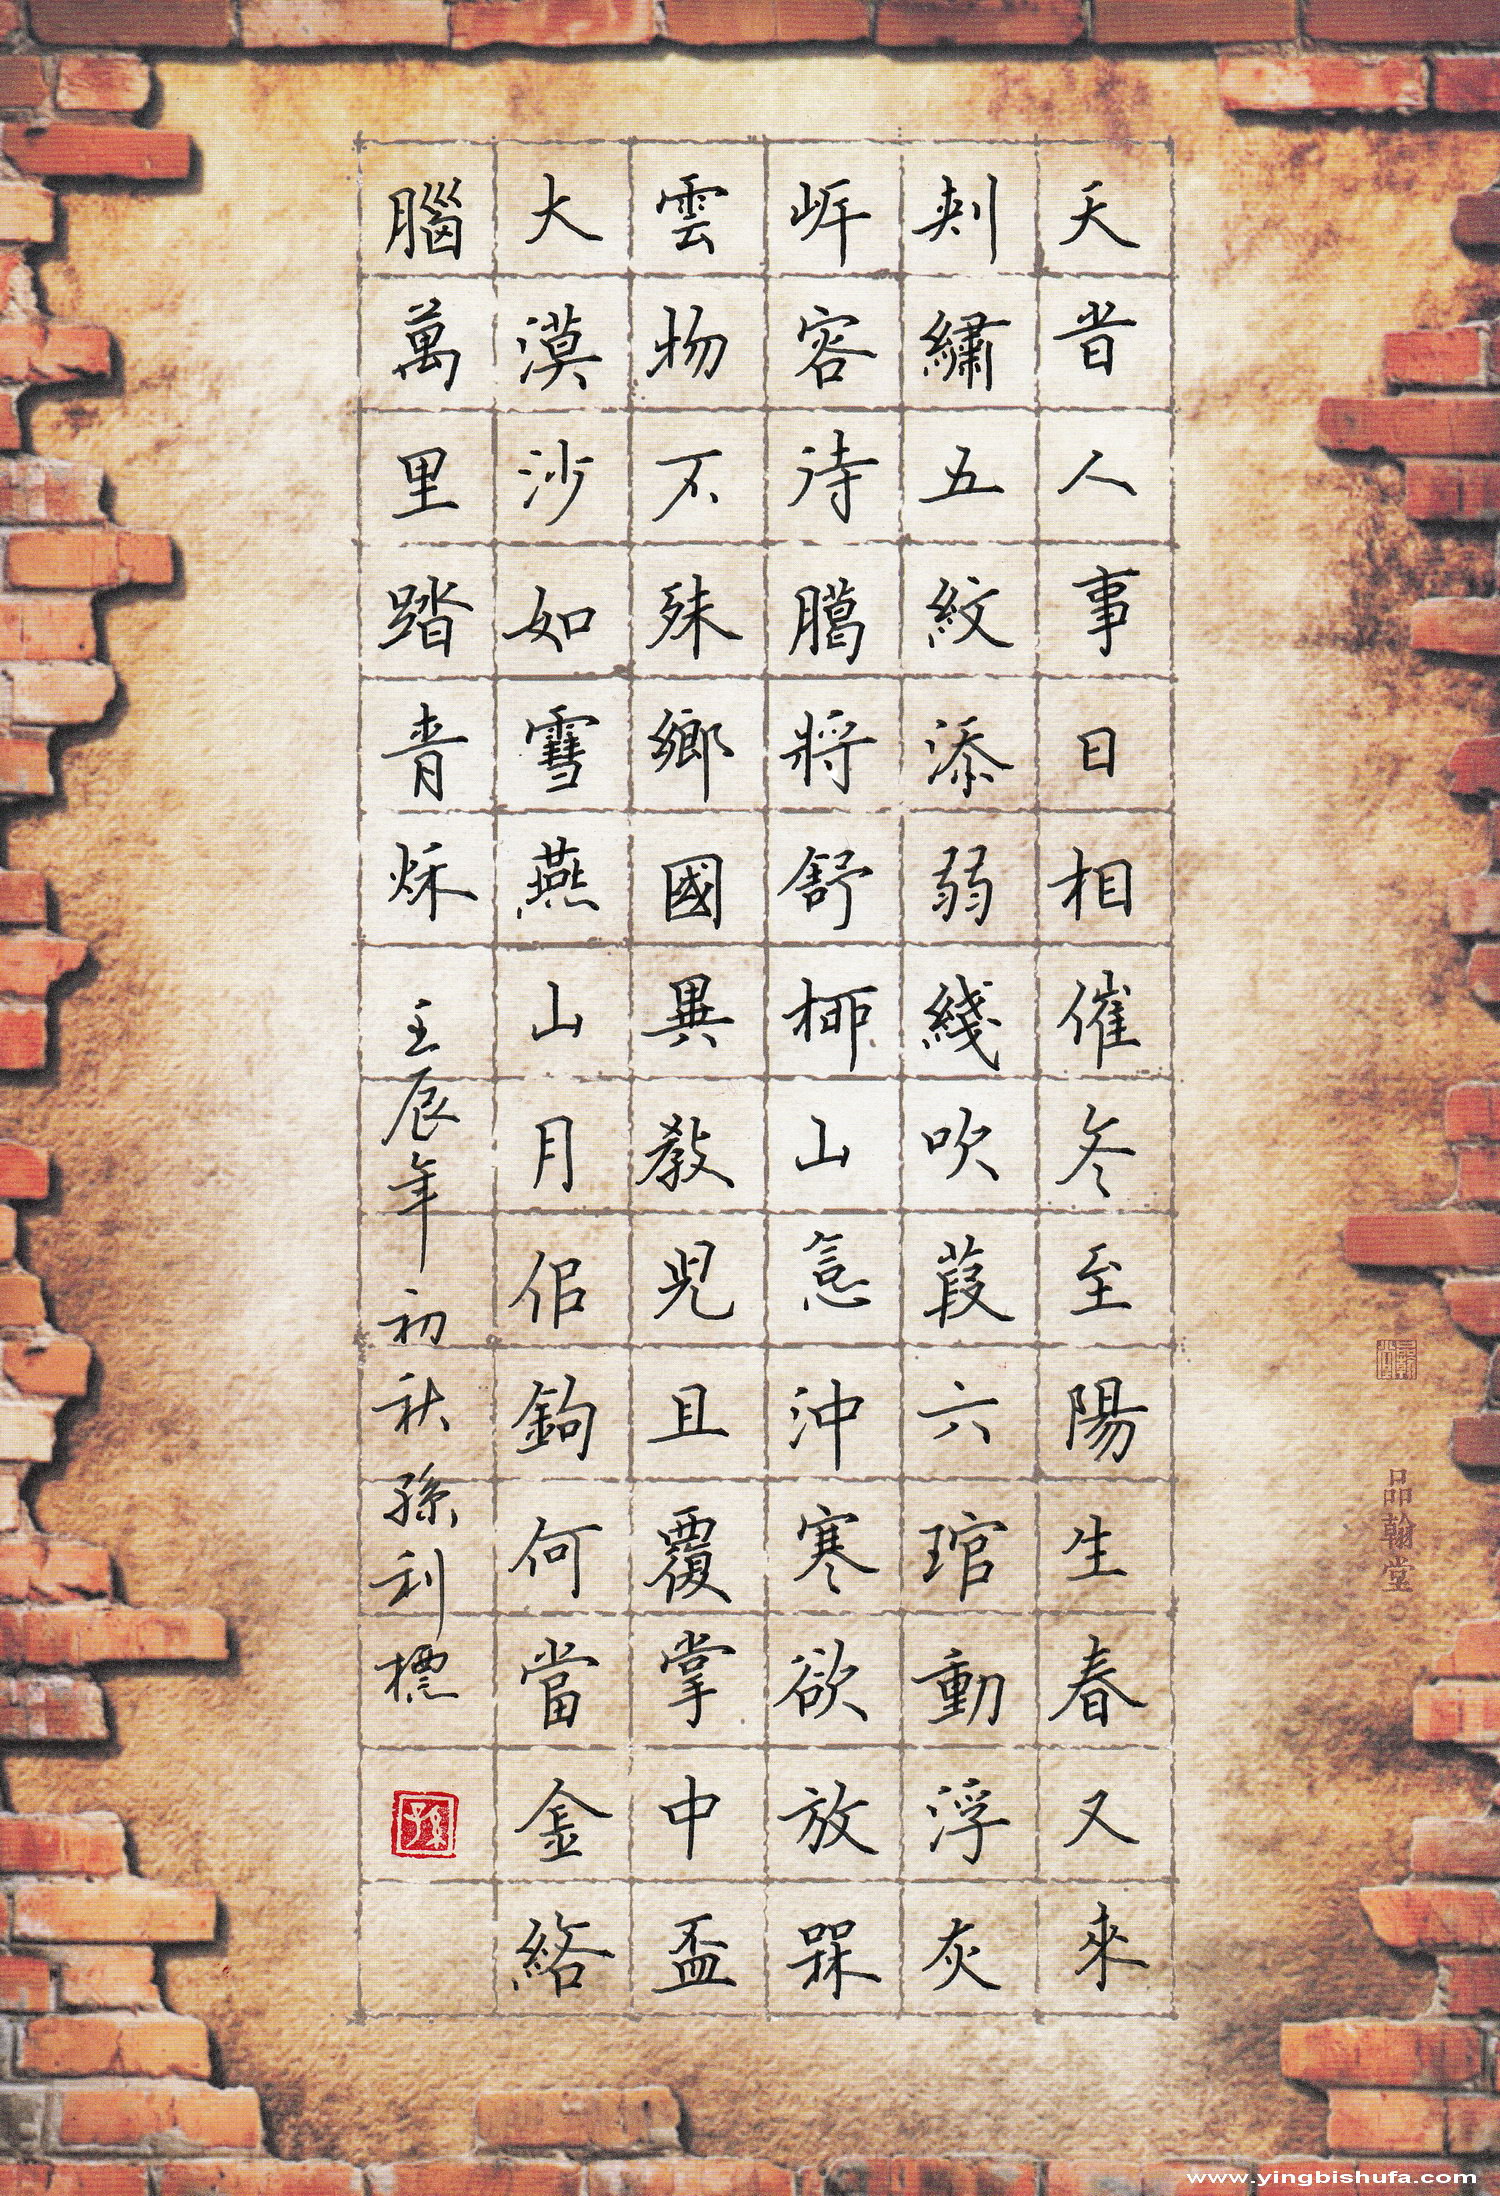 天旹人事日相催冬至陽生春又來
刺繡五紋添弱綫吹葭六琯動浮灰
岸容待臘將舒柳山意沖寒欲放槑
雲物不殊鄉國異教兒且覆掌中盃
大漠沙如雪燕山月佀鉤何當金絡
腦萬里踏青秌
壬辰年初秋孫利標
孫
品翰堂
www.yingbishufa.com